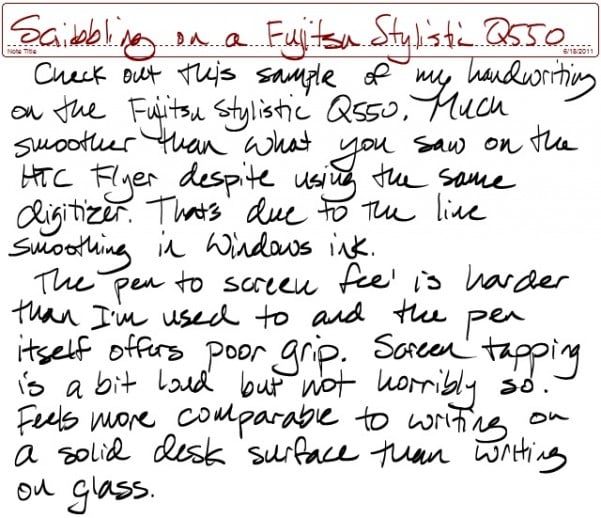 Scribbling on a Fujitsu Stylistic Q550
Note Title
6/18/2011
Check out this sample of my handwriting
on the Fujitsu Stylistic Q550. Much
smoother than what you saw on the
HTC Flyer despite using the same
digitizer. That's due to the line
smoothing in Windows ink.
The pen to screen feel is harder
than I'm used to and the pen
itself offers poor grip. Screen tapping
is a bit loud but not horribly so.
Feels more comparable to writing on
a solid desk surface than writing
on glass.